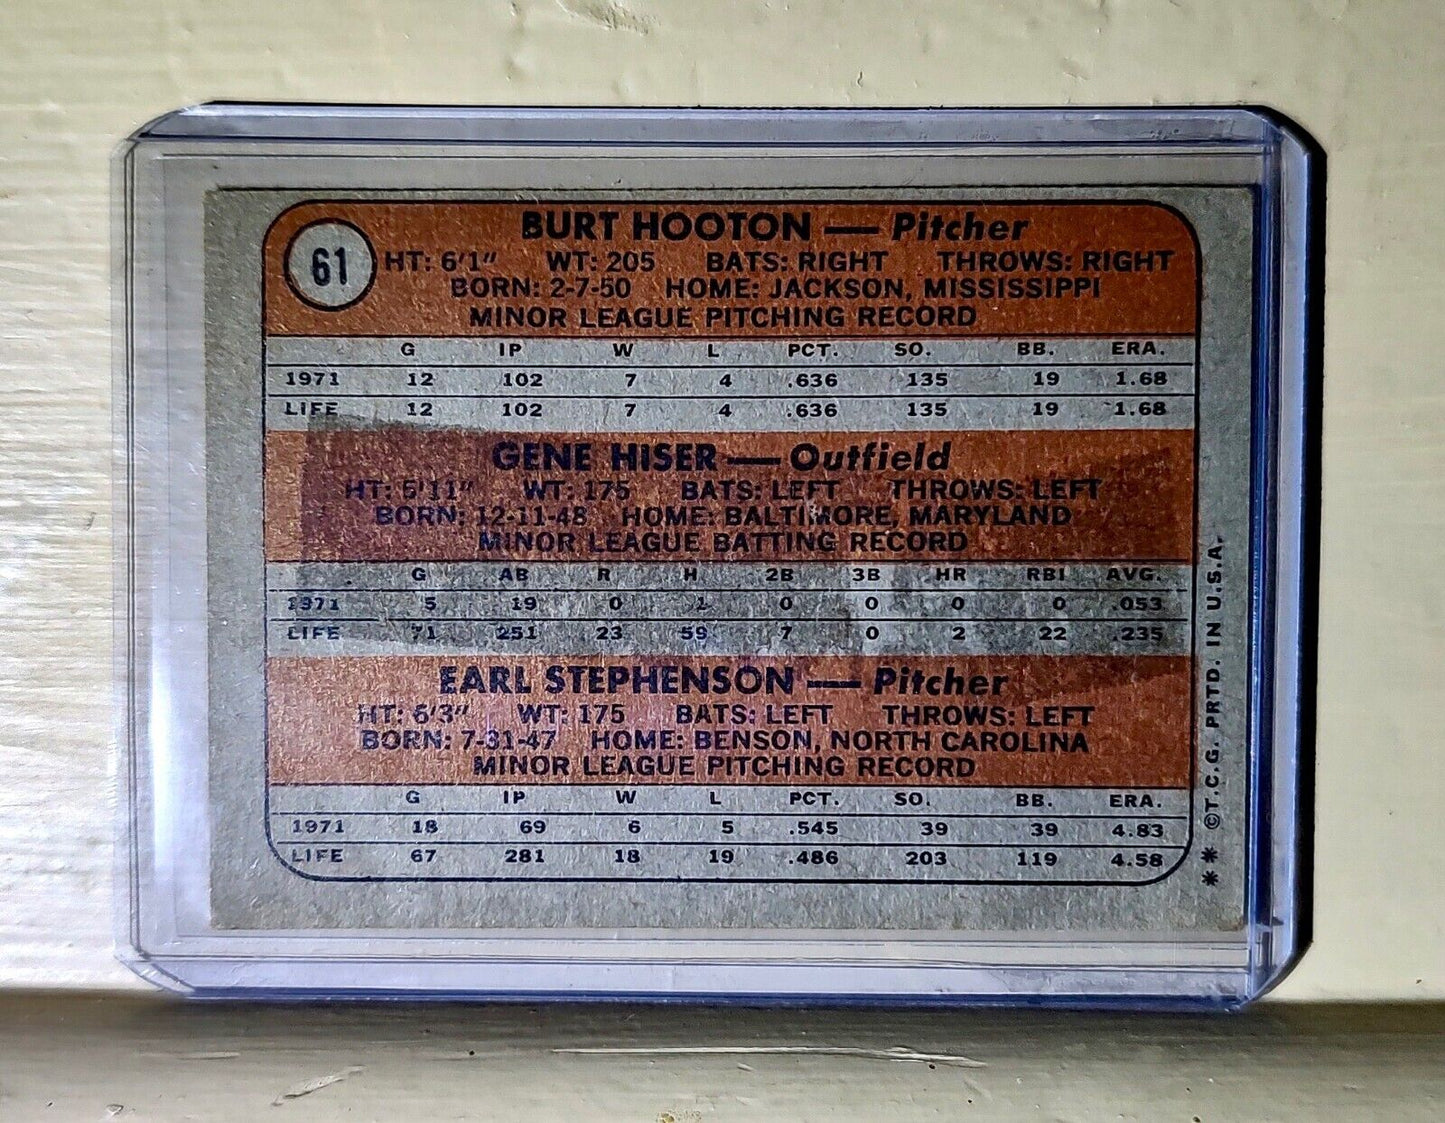 61
BURT HOOTON — Pitcher
HT: 6'1" WT: 205 BATS: RIGHT THROWS: RIGHT
BORN: 2-7-50 HOME: JACKSON, MISSISSIPPI
MINOR LEAGUE PITCHING RECORD
G IP W L PCT. SO. BB. ERA.
1971 12 102 7 4 .636 135 19 1.68
LIFE 12 102 7 4 .636 135 19 1.68
GENE HISER — Outfield
HT: 5'11" WT: 175 BATS: LEFT THROWS: LEFT
BORN: 12-11-48 HOME: BALTIMORE, MARYLAND
MINOR LEAGUE BATTING RECORD
G AB R H 2B 3B HR RBI AVG.
1971 5 19 0 1 0 0 0 0 .053
LIFE 71 251 23 59 7 0 2 22 .235
EARL STEPHENSON — Pitcher
HT: 6'3" WT: 175 BATS: LEFT THROWS: LEFT
BORN: 7-31-47 HOME: BENSON, NORTH CAROLINA
MINOR LEAGUE PITCHING RECORD
G IP W L PCT. SO. BB. ERA.
1971 18 69 6 5 .545 39 39 4.83
LIFE 67 281 18 19 .486 203 119 4.58
** ©T.C.G. PRTD. IN U.S.A.